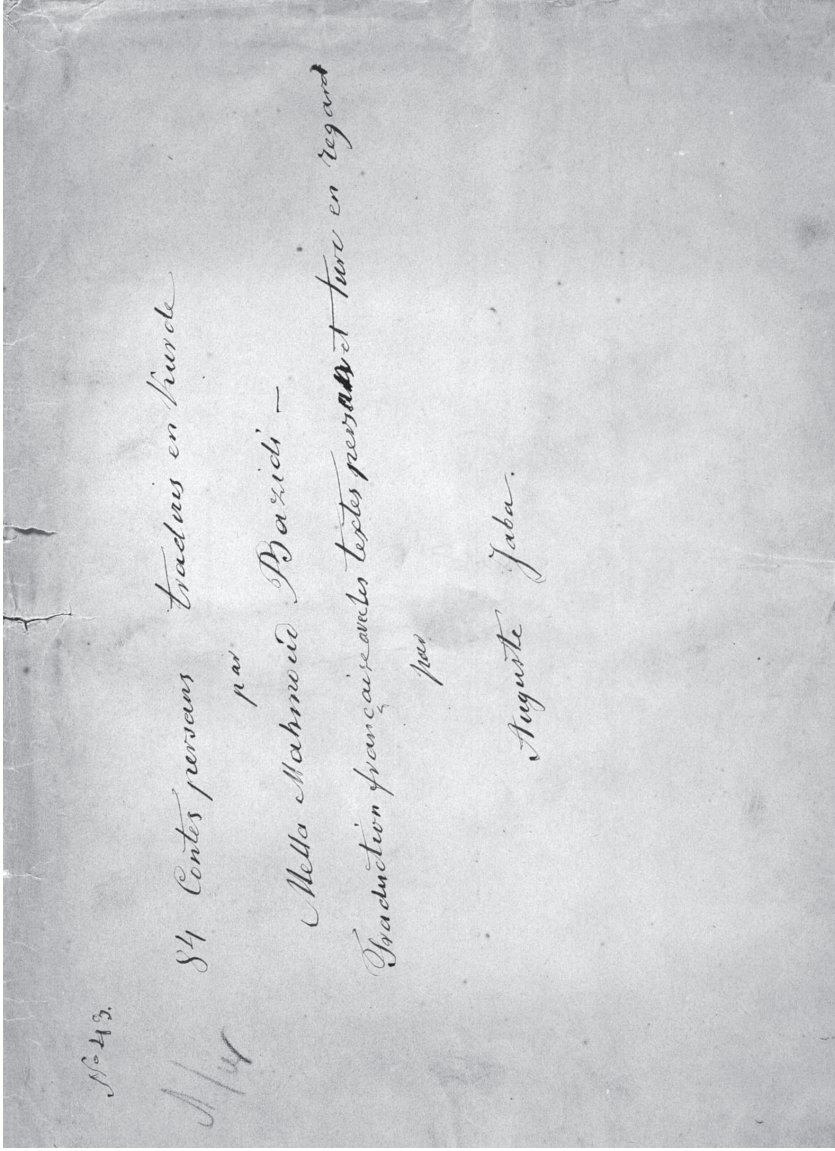 Nº 43.
84 Contes persans traduis en Kurde
par
Mella Mahmoud Bazidi —
Traduction française avec les textes persans et turc en regard
par
Auguste Jaba.